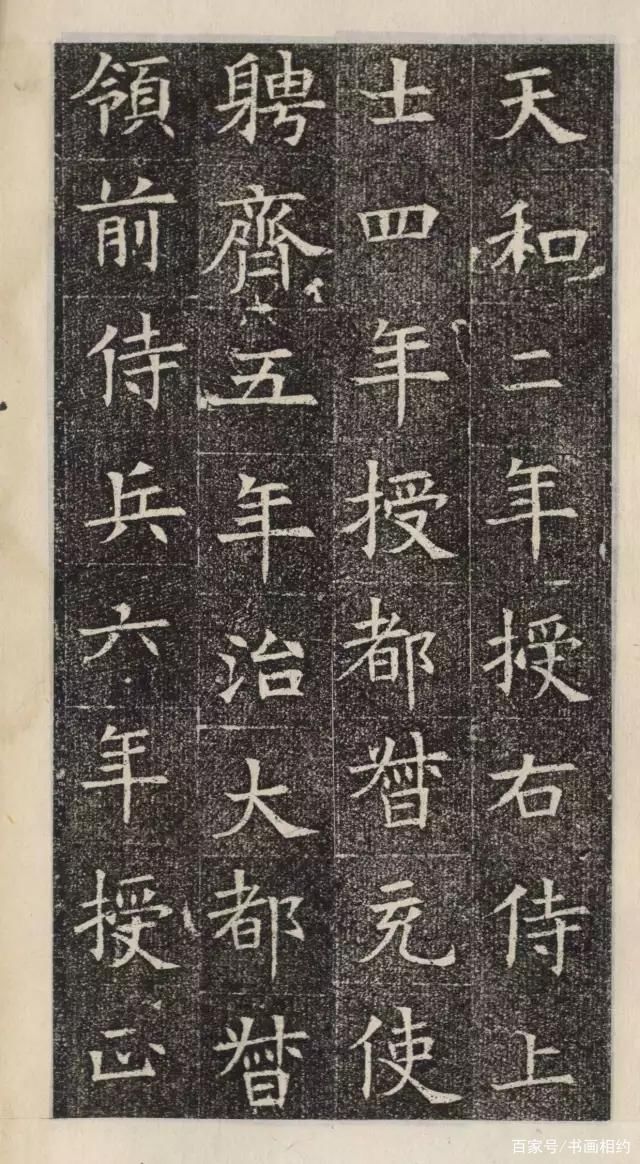 天和二年授右侍上
士四年授都督充使
聘齊五年治大都督
領前侍兵六年授正
百家号/书画相约